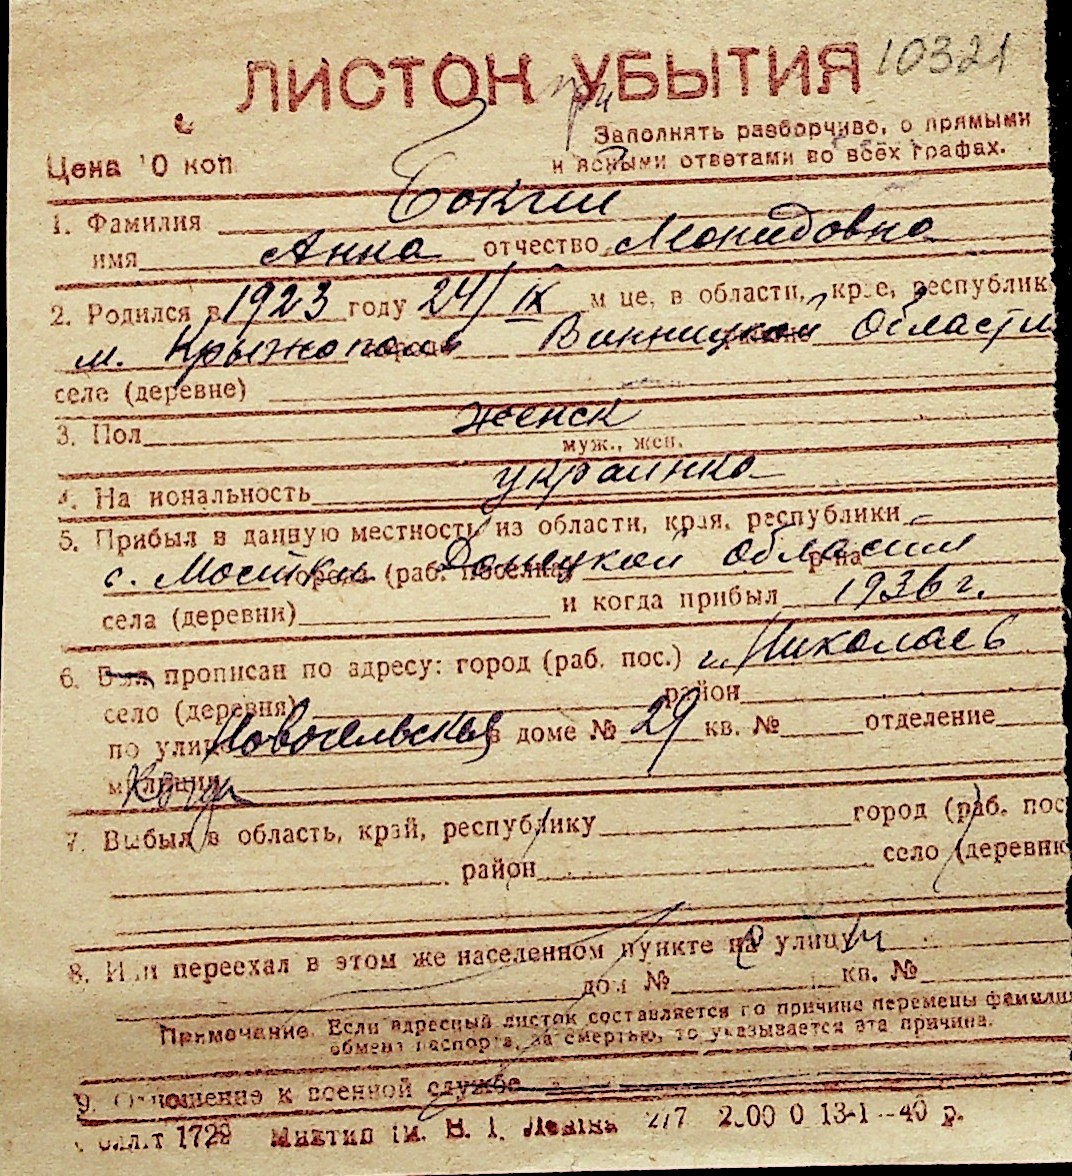 ЛИСТОК УБЫТИЯ 10321
при
Заполнять разборчиво, с прямыми
и ясными ответами во всех графах.
Цена 10 коп
1. Фамилия
имя Анна отчество
2. Родился в 1923 году 24/IX м це, в области, крае, республик
м. Крыжополь Винницкой области
селе (деревне)
3. Пол женск
муж., жен.
4. Национальность украинка
5. Прибыл в данную местность из области, края, республики
с. Мостки города (раб. поселка) Донецкой области р-на
села (деревни) и когда прибыл 1936 г.
6. Был прописан по адресу: город (раб. пос.) г. Николаев
село (деревня) район
по улице Новосельская в доме № 29 кв. № отделение
милиции
7. Выбыл в область, край, республику город (раб. пос
район село (деревню
8. Или переехал в этом же населенном пункте на улицу
дом № кв. №
Примечание. Если адресный листок составляется по причине перемены фамилии
обмена паспорта, за смертью, то указывается эта причина.
9. Отношение к военной службе
1729 Миктип ім. В. І. Леніна 2/7 13-1 -40 р.